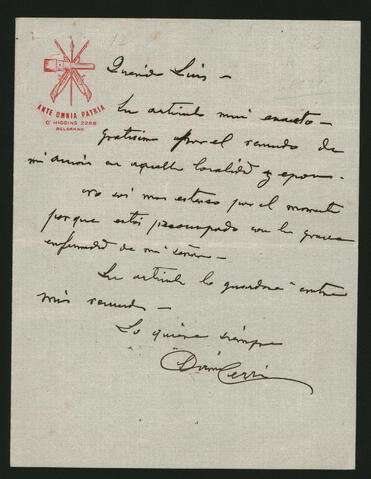 ANTE OMNIA PATRIA
O'HIGGINS 2268
BELGRANO
Querido Luis –
Su artículo muy exacto –
gratísimo por el recuerdo de
mi acción en aquella localidad y época.
no soy mas extenso por el momento
porque estoy preocupado con la grave
enfermedad de mi señora –
Su artículo lo guardaré entre
mis recuerdos –
Lo quiere siempre